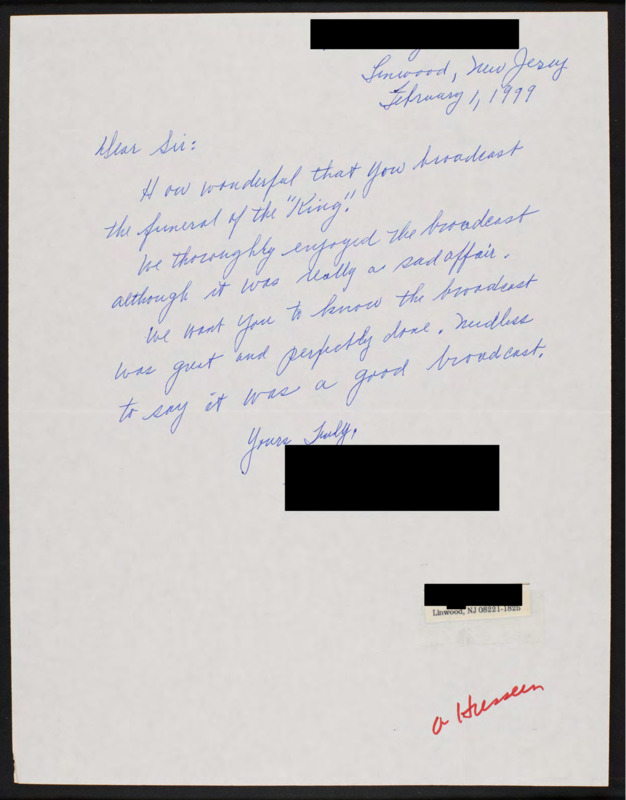 Linwood, New Jersey
February 1, 1999
Dear Sir:
How wonderful that you broadcast
the funeral of the "King".
We thoroughly enjoyed the broadcast
although it was really a sad affair.
We want you to know the broadcast
was great and perfectly done. Needless
to say it was a good broadcast.
Yours Truly,
Linwood, NJ 08221-1825
Hussein